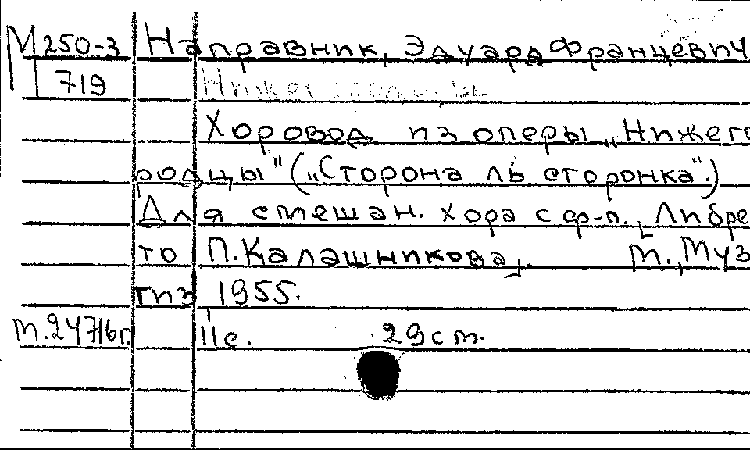 М250-3 Направник, Эдуард Францевич
719
Хоровод из оперы „Нижего
родцы" („Сторона ль сторонка".)
Для смешан. хора с ф-п. Либре
то П. Калашникова. М., Муз
гиз 1955.
м.24716г. 11с. 29см.